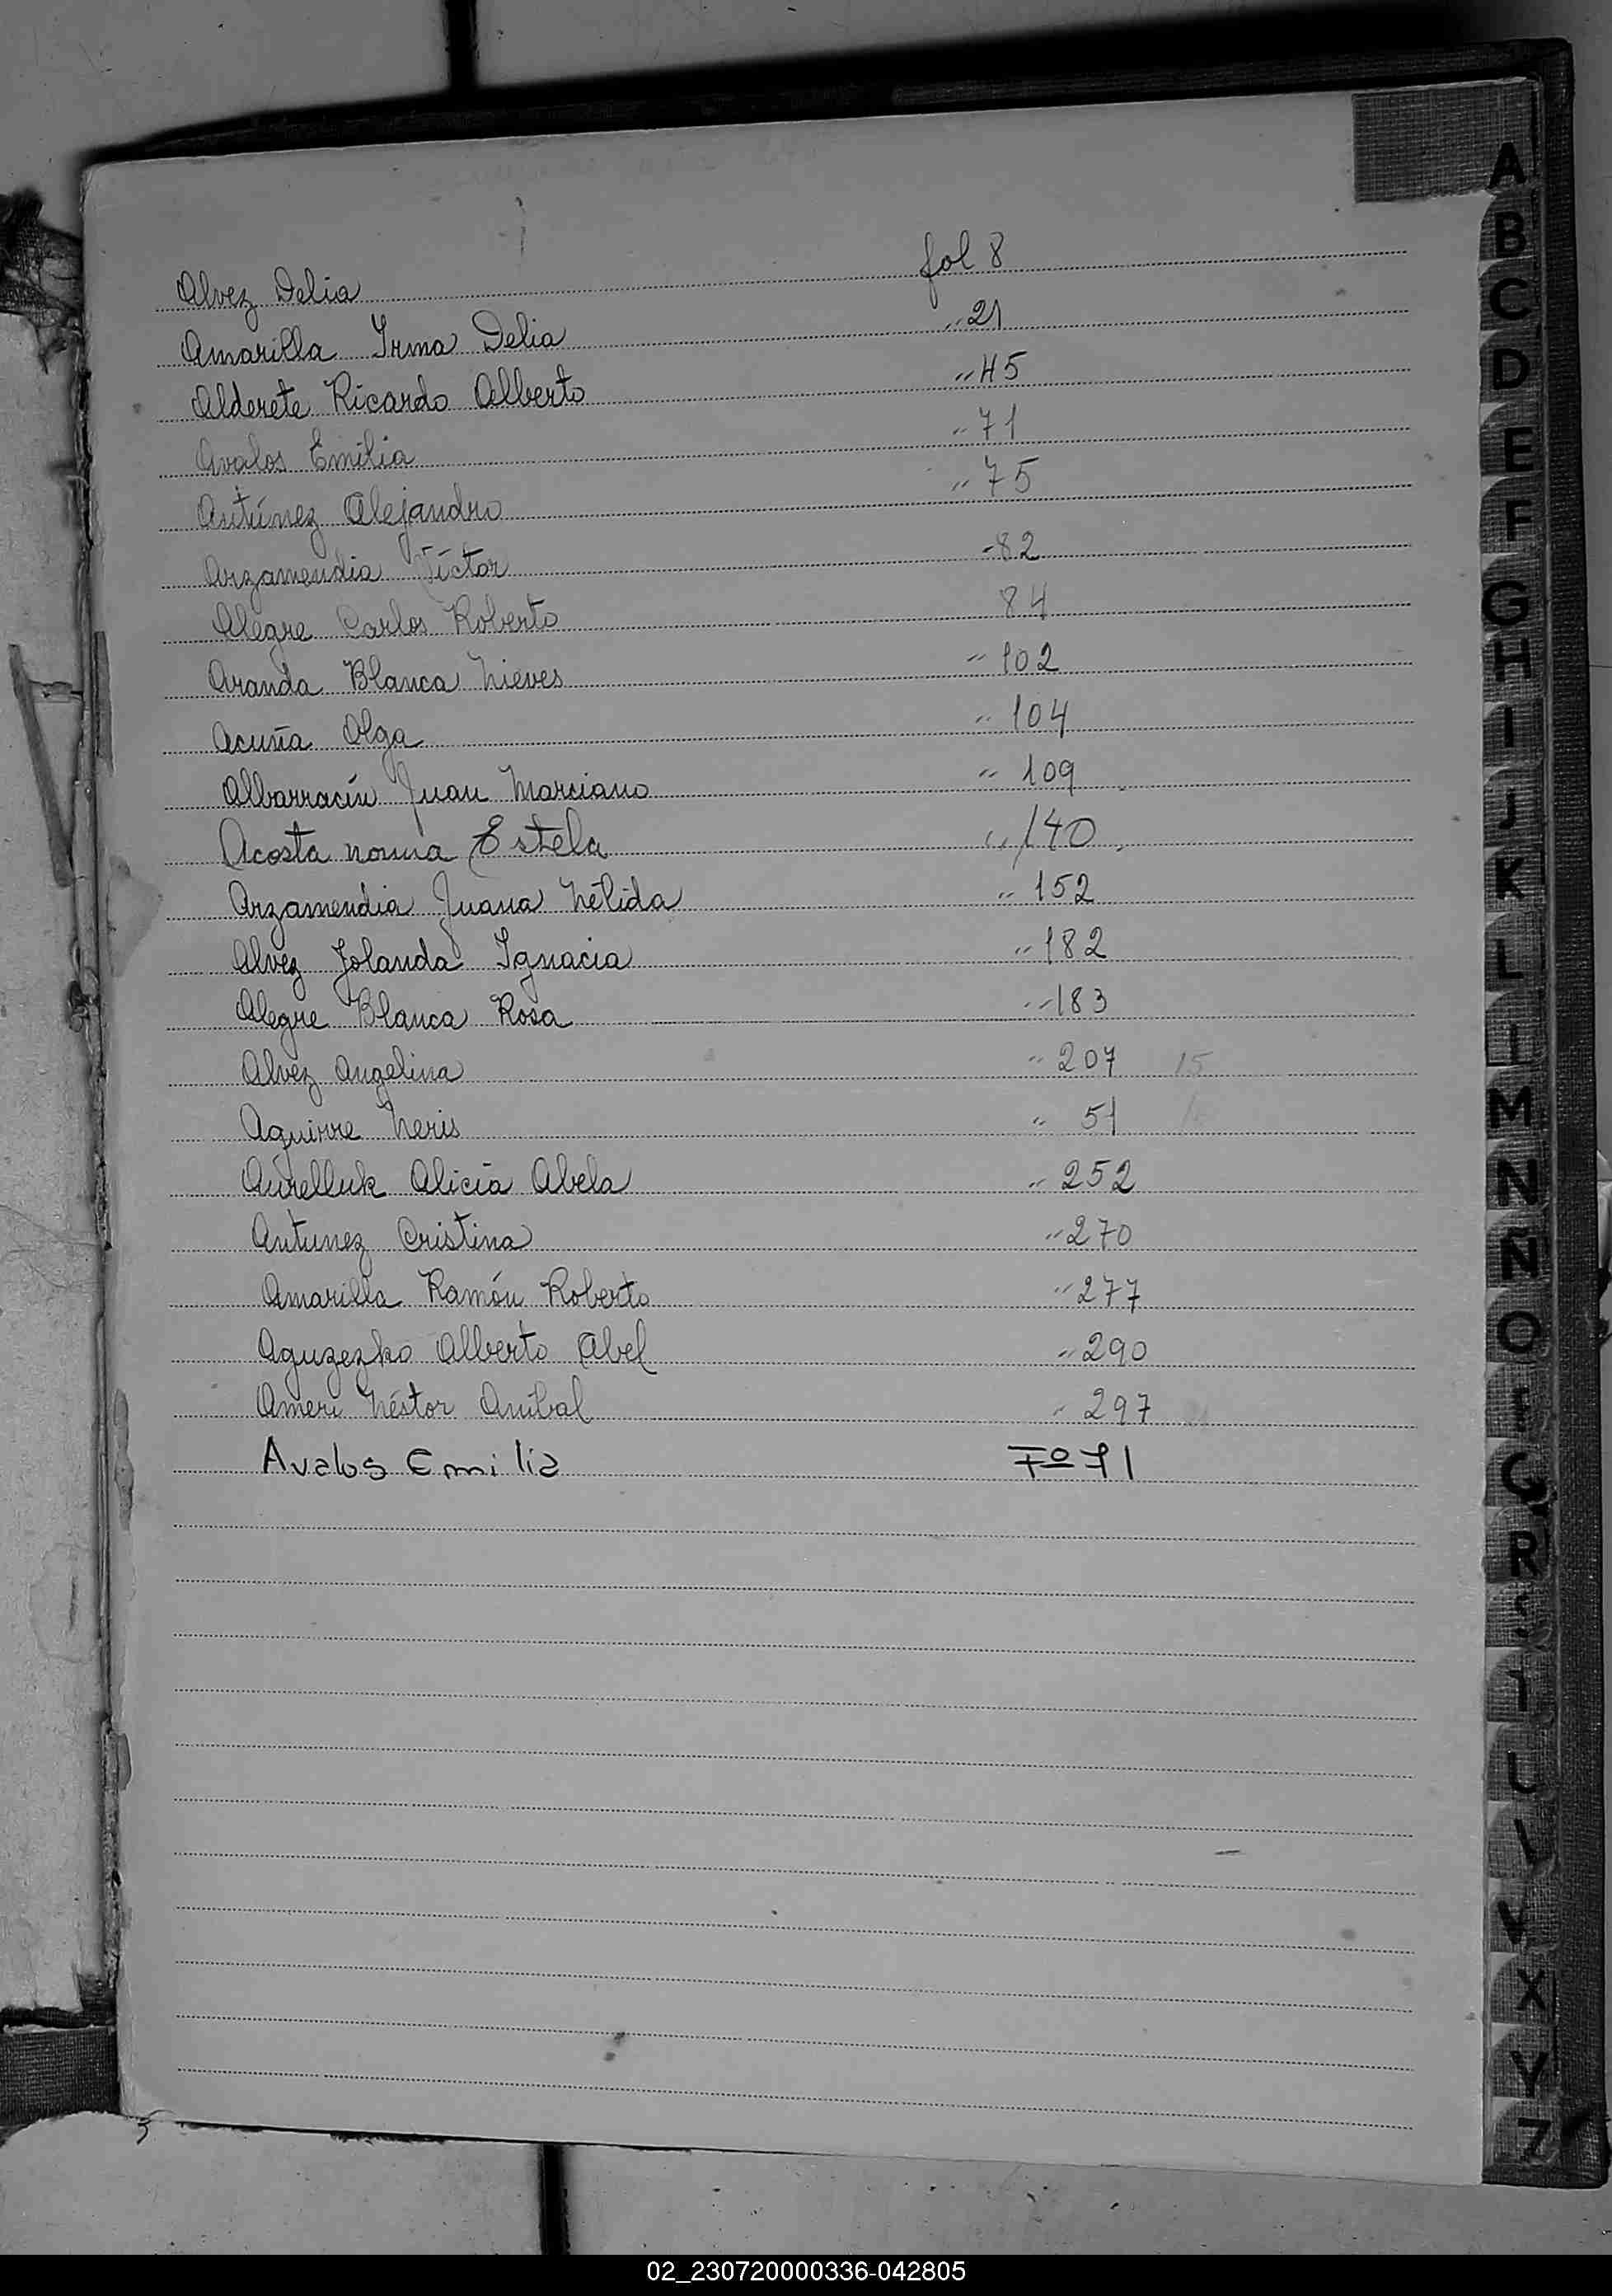 Alvez Delia fol 8
Amarilla Irma Delia " 21
Alderete Ricardo Alberto " 45
Avalos Emilia " 71
Antúnez Alejandro " 75
Arzamendia Víctor - 82
Alegre Carlos Roberto 84
Aranda Blanca Nieves " 102
Acuña Olga " 104
Albarracín Juan Marciano " 109
Acosta norma Estela " 140
Arzamendia Juana Nélida " 152
Alvez Yolanda Ignacia " 182
Alegre Blanca Rosa " 183
Alvez Angelina " 207 15
Aguirre Neris " 51
Alicia Abela " 252
Antunez Cristina " 270
Amarilla Ramón Roberto " 277
Aguzezko Alberto Abel " 290
Ameri Néstor Aníbal " 297
Avalos Emilia Fº 71
A
B
C
D
E
F
G
H
I
J
K
L
M
N
Ñ
O
Q
R
U
V
X
Y
Z
02_230720000336-042805